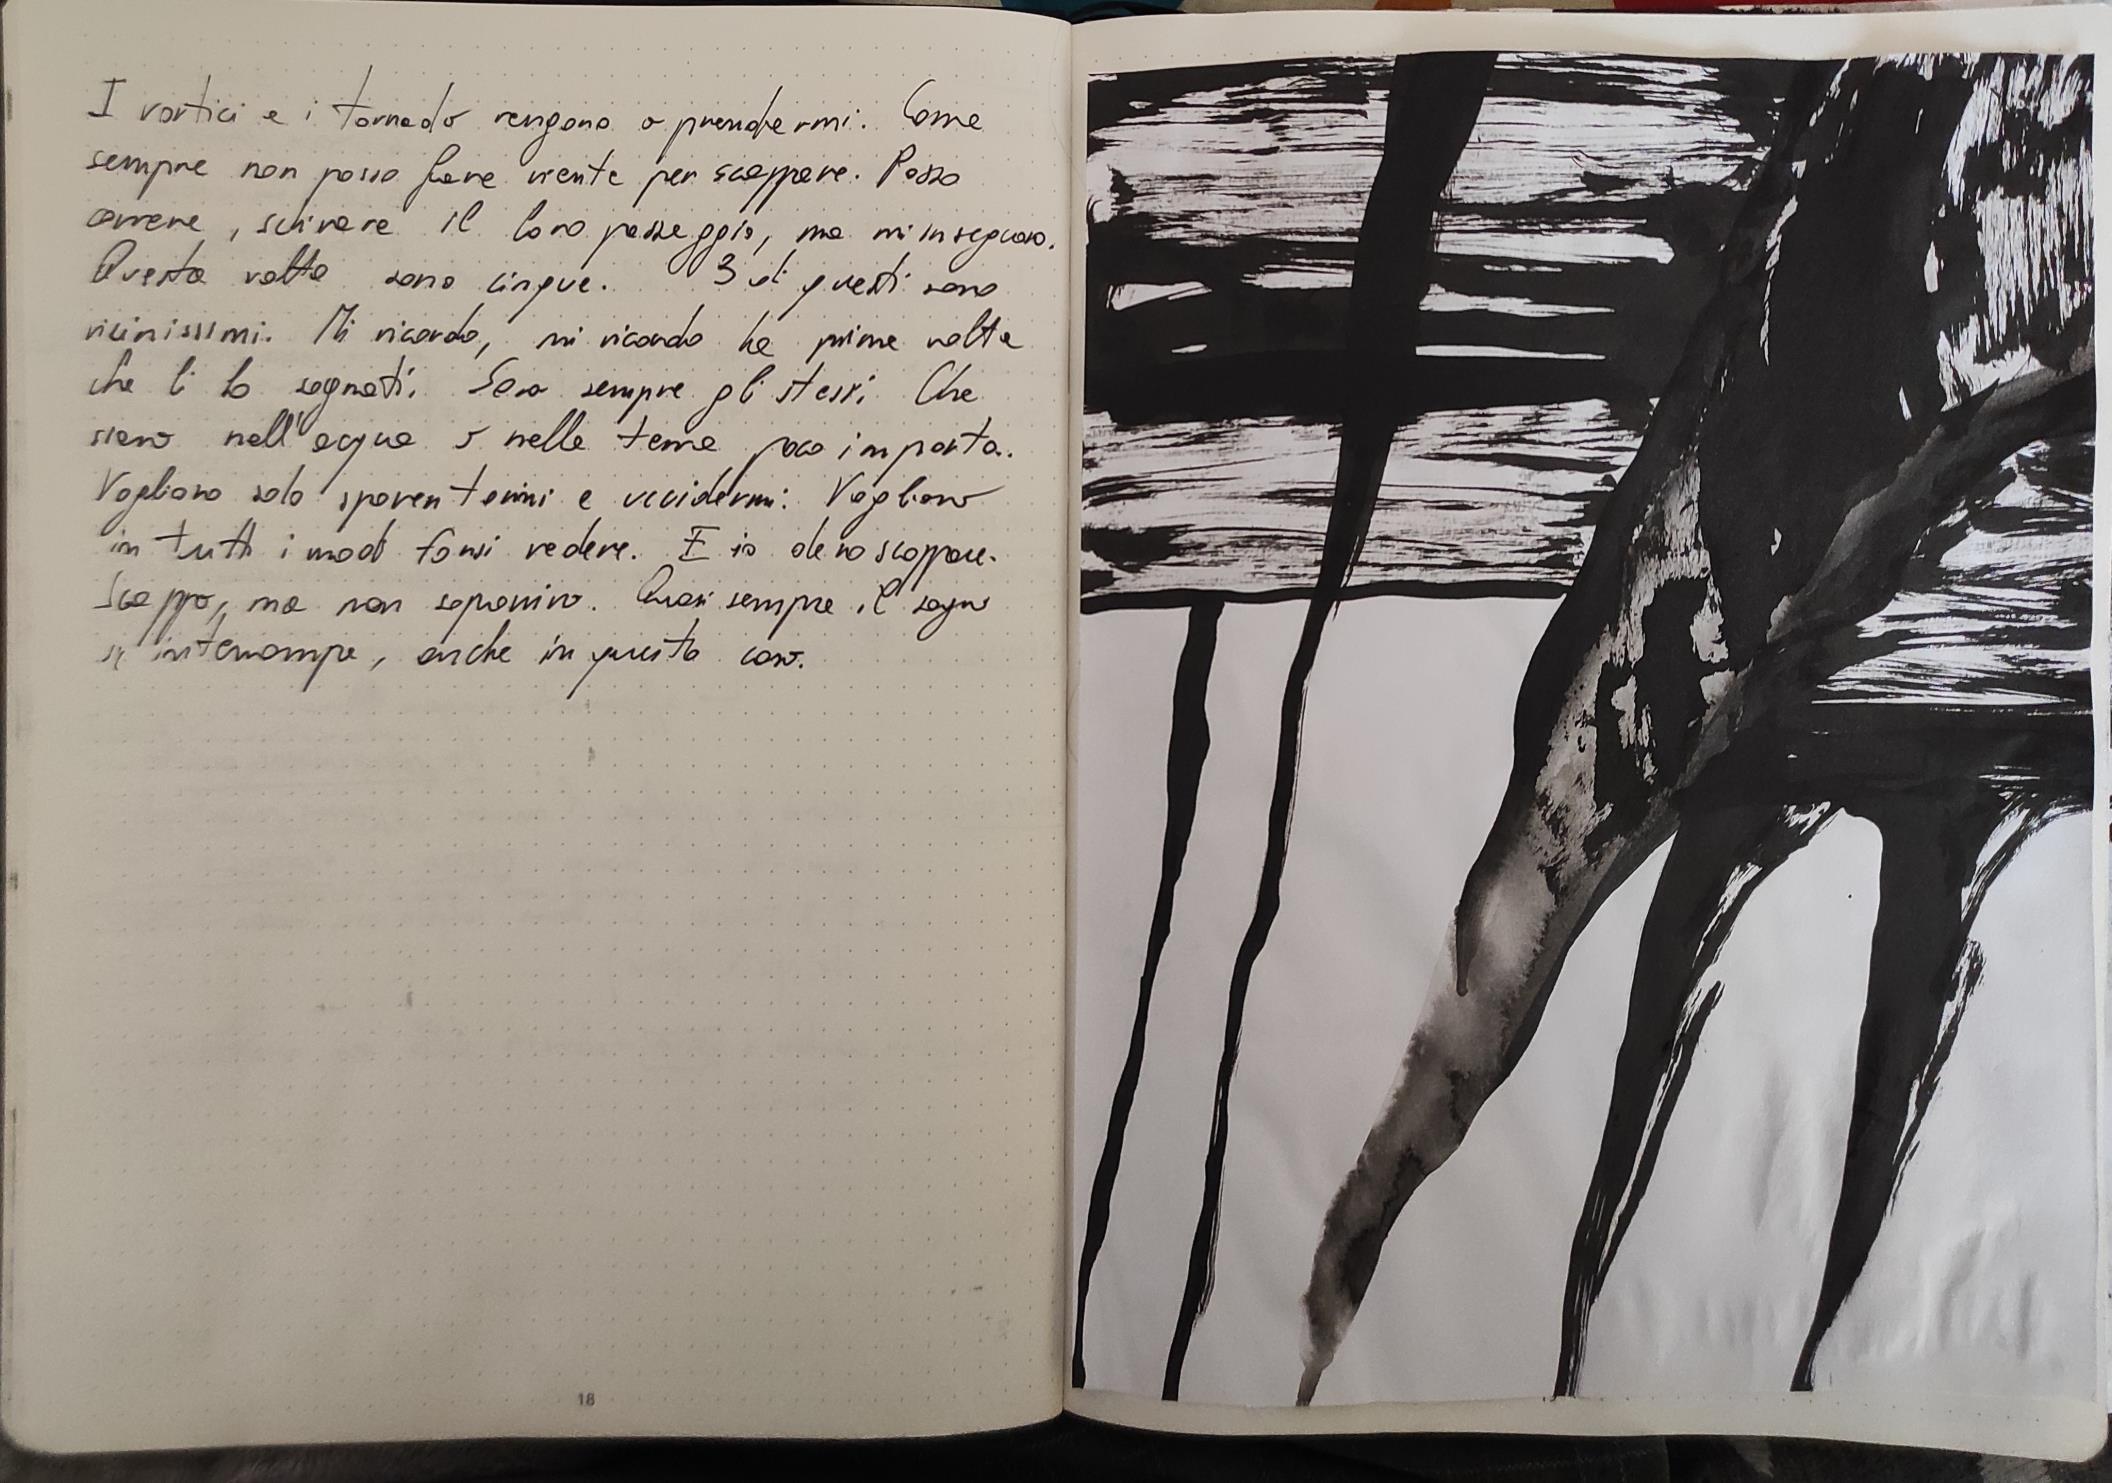 I vortici e i tornado vengono a prendermi. Come
sempre non posso fare niente per scappare. Posso
correre, schivare il loro passaggio, ma mi inseguono.
Questa volta sono cinque. 3 di questi sono
vicinissimi. Mi ricordo, mi ricordo la prima volta
che li ho sognati. Sono sempre gli stessi. Che
siano nell'acqua o nella terra poco importa.
Vogliono solo spaventarmi e uccidermi. Vogliono
in tutti i modi farsi vedere. E io devo scappare.
Scappo, ma non sopravvivo. Quasi sempre il sogno
si interrompe, anche in questo caso.
18